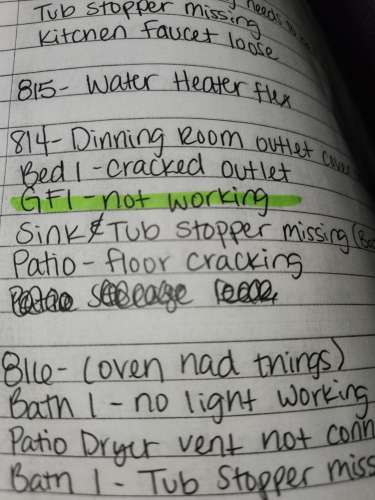 needs to
Tub Stopper missing
Kitchen faucet loose
815- Water Heater flex
814- Dinning Room outlet cover
Bed 1 - cracked outlet
GFI - not working
Sink & Tub Stopper missing (Ba
Patio - floor cracking
Patio
816- (oven had things)
Bath 1 - no light working
Patio Dryer vent not conn
Bath 1 - Tub Stopper miss